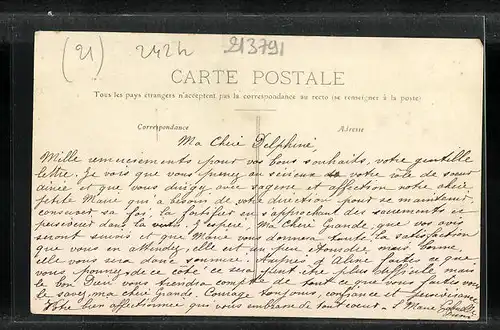 (21) 242h 213791
CARTE POSTALE
Tous les pays étrangers n'acceptent pas la correspondance au recto (se renseigner à la poste)
Correspondance Adresse
Ma Chère Delphine,
Mille remerciements pour vos bons souhaits, votre gentille
lettre. Je vois que vous prenez au sérieux votre rôle de sœur
aînée et que vous dirigez avec sagesse et affection notre chère
petite Marie qui a besoin de votre direction pour se maintenir,
conserver sa foi, la fortifier en s'approchant des sacrements et
persévérer dans la vertu. J'espère, Ma chère Grande, que vos avis
seront suivis et que Marie vous donnera toute la satisfaction
que vous en attendez, elle est un peu étourdie mais bonne,
elle vous sera donc soumise. Auprès d'Aline faites ce que
vous pourrez, de ce côté ce sera peut être plus difficile mais
le bon Dieu vous tiendra compte de tout ce que vous faites vous
le savez, ma chère Grande, Courage toujours, confiance et persévérance
Votre bien affectionnée qui vous embrasse de tout cœur. S. Marie